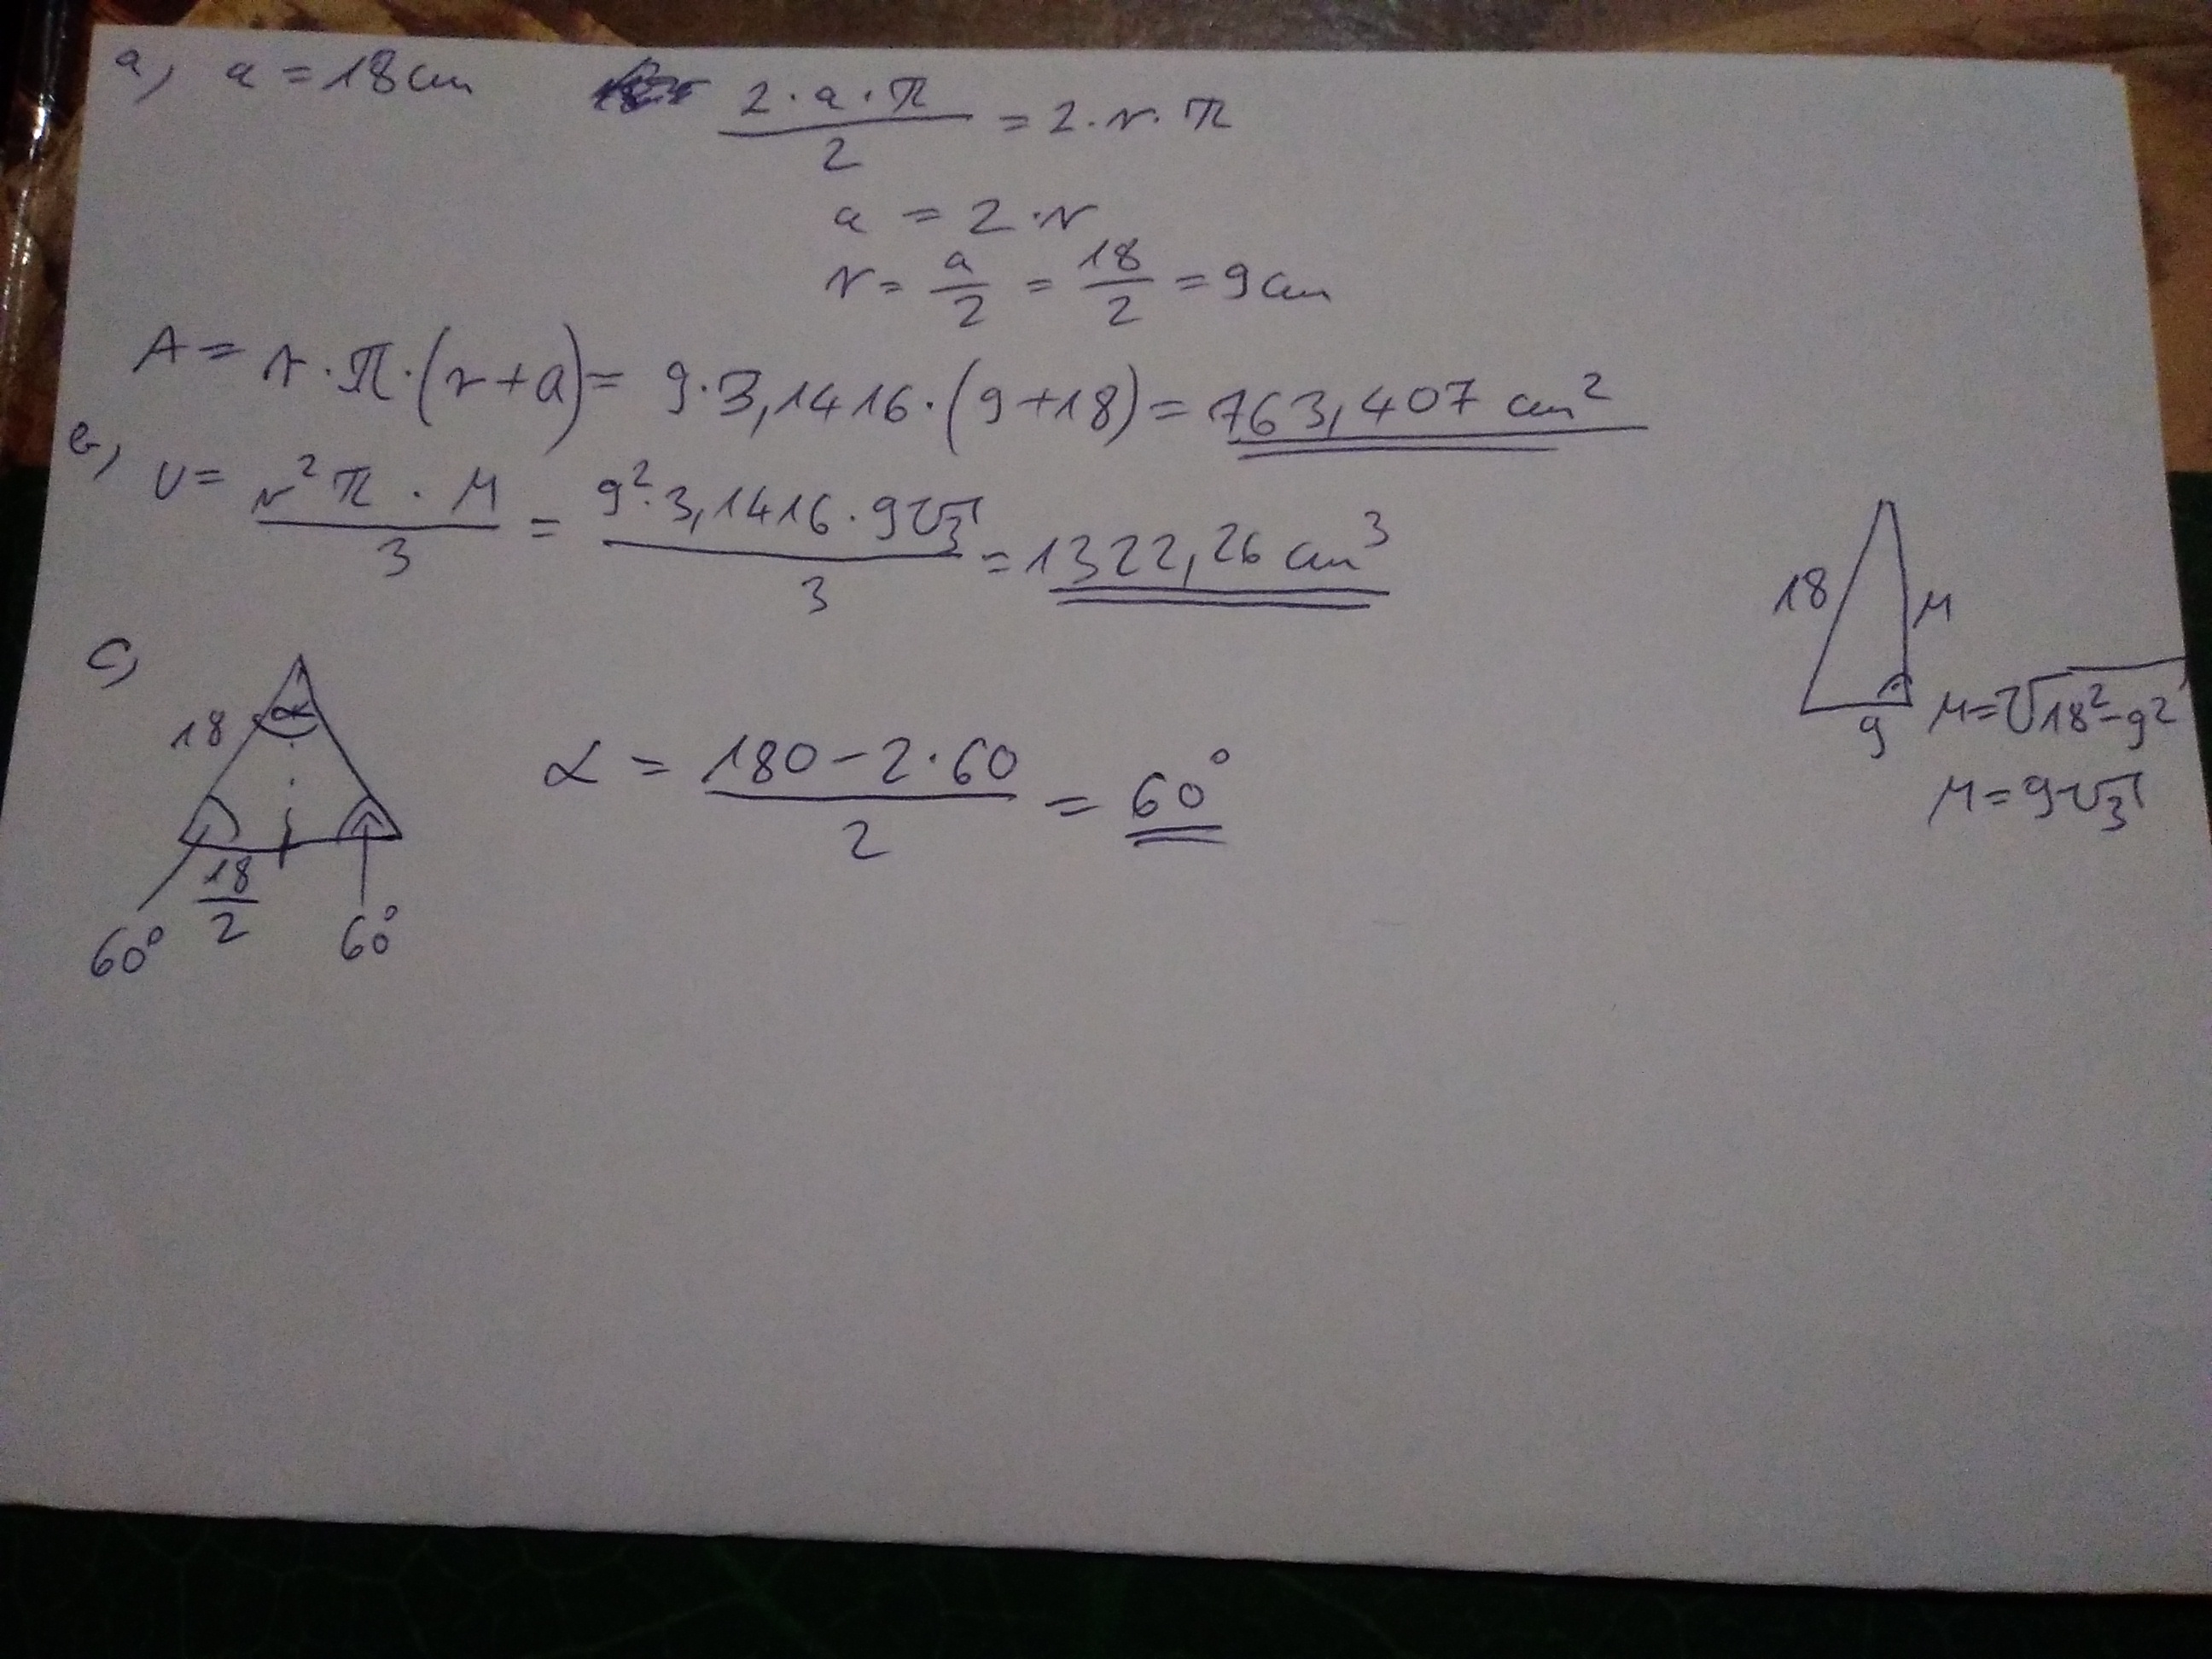 a, a = 18 cm
2 · a · π / 2 = 2 · r · π
a = 2 · r
r = a/2 = 18/2 = 9 cm
A = r · π · (r + a) = 9 · 3,1416 · (9 + 18) = 763,407 cm²
b, V = r² π · M / 3 = 9² · 3,1416 · 9√3 / 3 = 1322,26 cm³
18
M
9
M = √18² - 9²
M = 9√3
c,
18
α
18/2
60°
60°
α = 180 - 2 · 60 / 2 = 60°